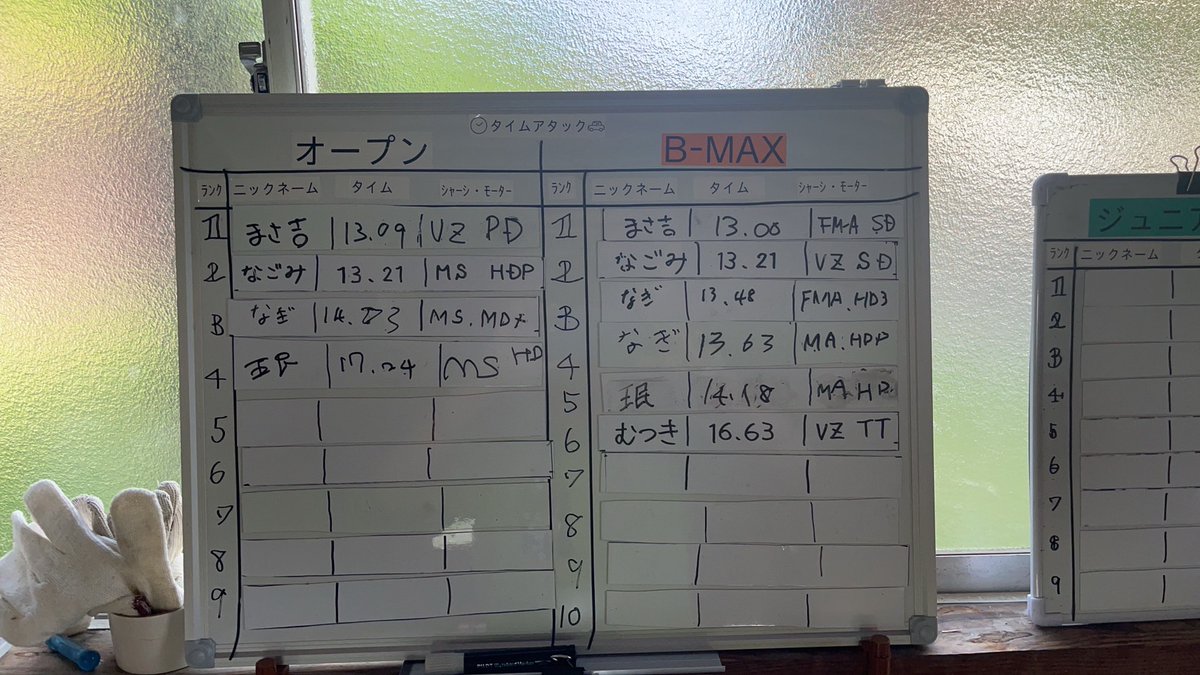 タイムアタック
オープン
ランク ニックネーム タイム シャーシ・モーター
1 まさ吉 13.09 VZ PD
2 なごみ 13.21 MS HDP
3 なぎ MS.MDX
4 17.24 MS HD
5
6
7
8
9
B-MAX
ランク ニックネーム タイム シャーシ・モーター
1 まさ吉 FM-A SD
2 なごみ 13.21 VZ SD
3 なぎ 13.48 FMA.HD3
4 なぎ 13.63 MA.HDP
5 珉 14.18 MA.HD
6 むつき 16.63 VZ TT
7
8
9
10
ジュニア
ランク ニックネーム
1
2
3
4
5
6
7
8
9